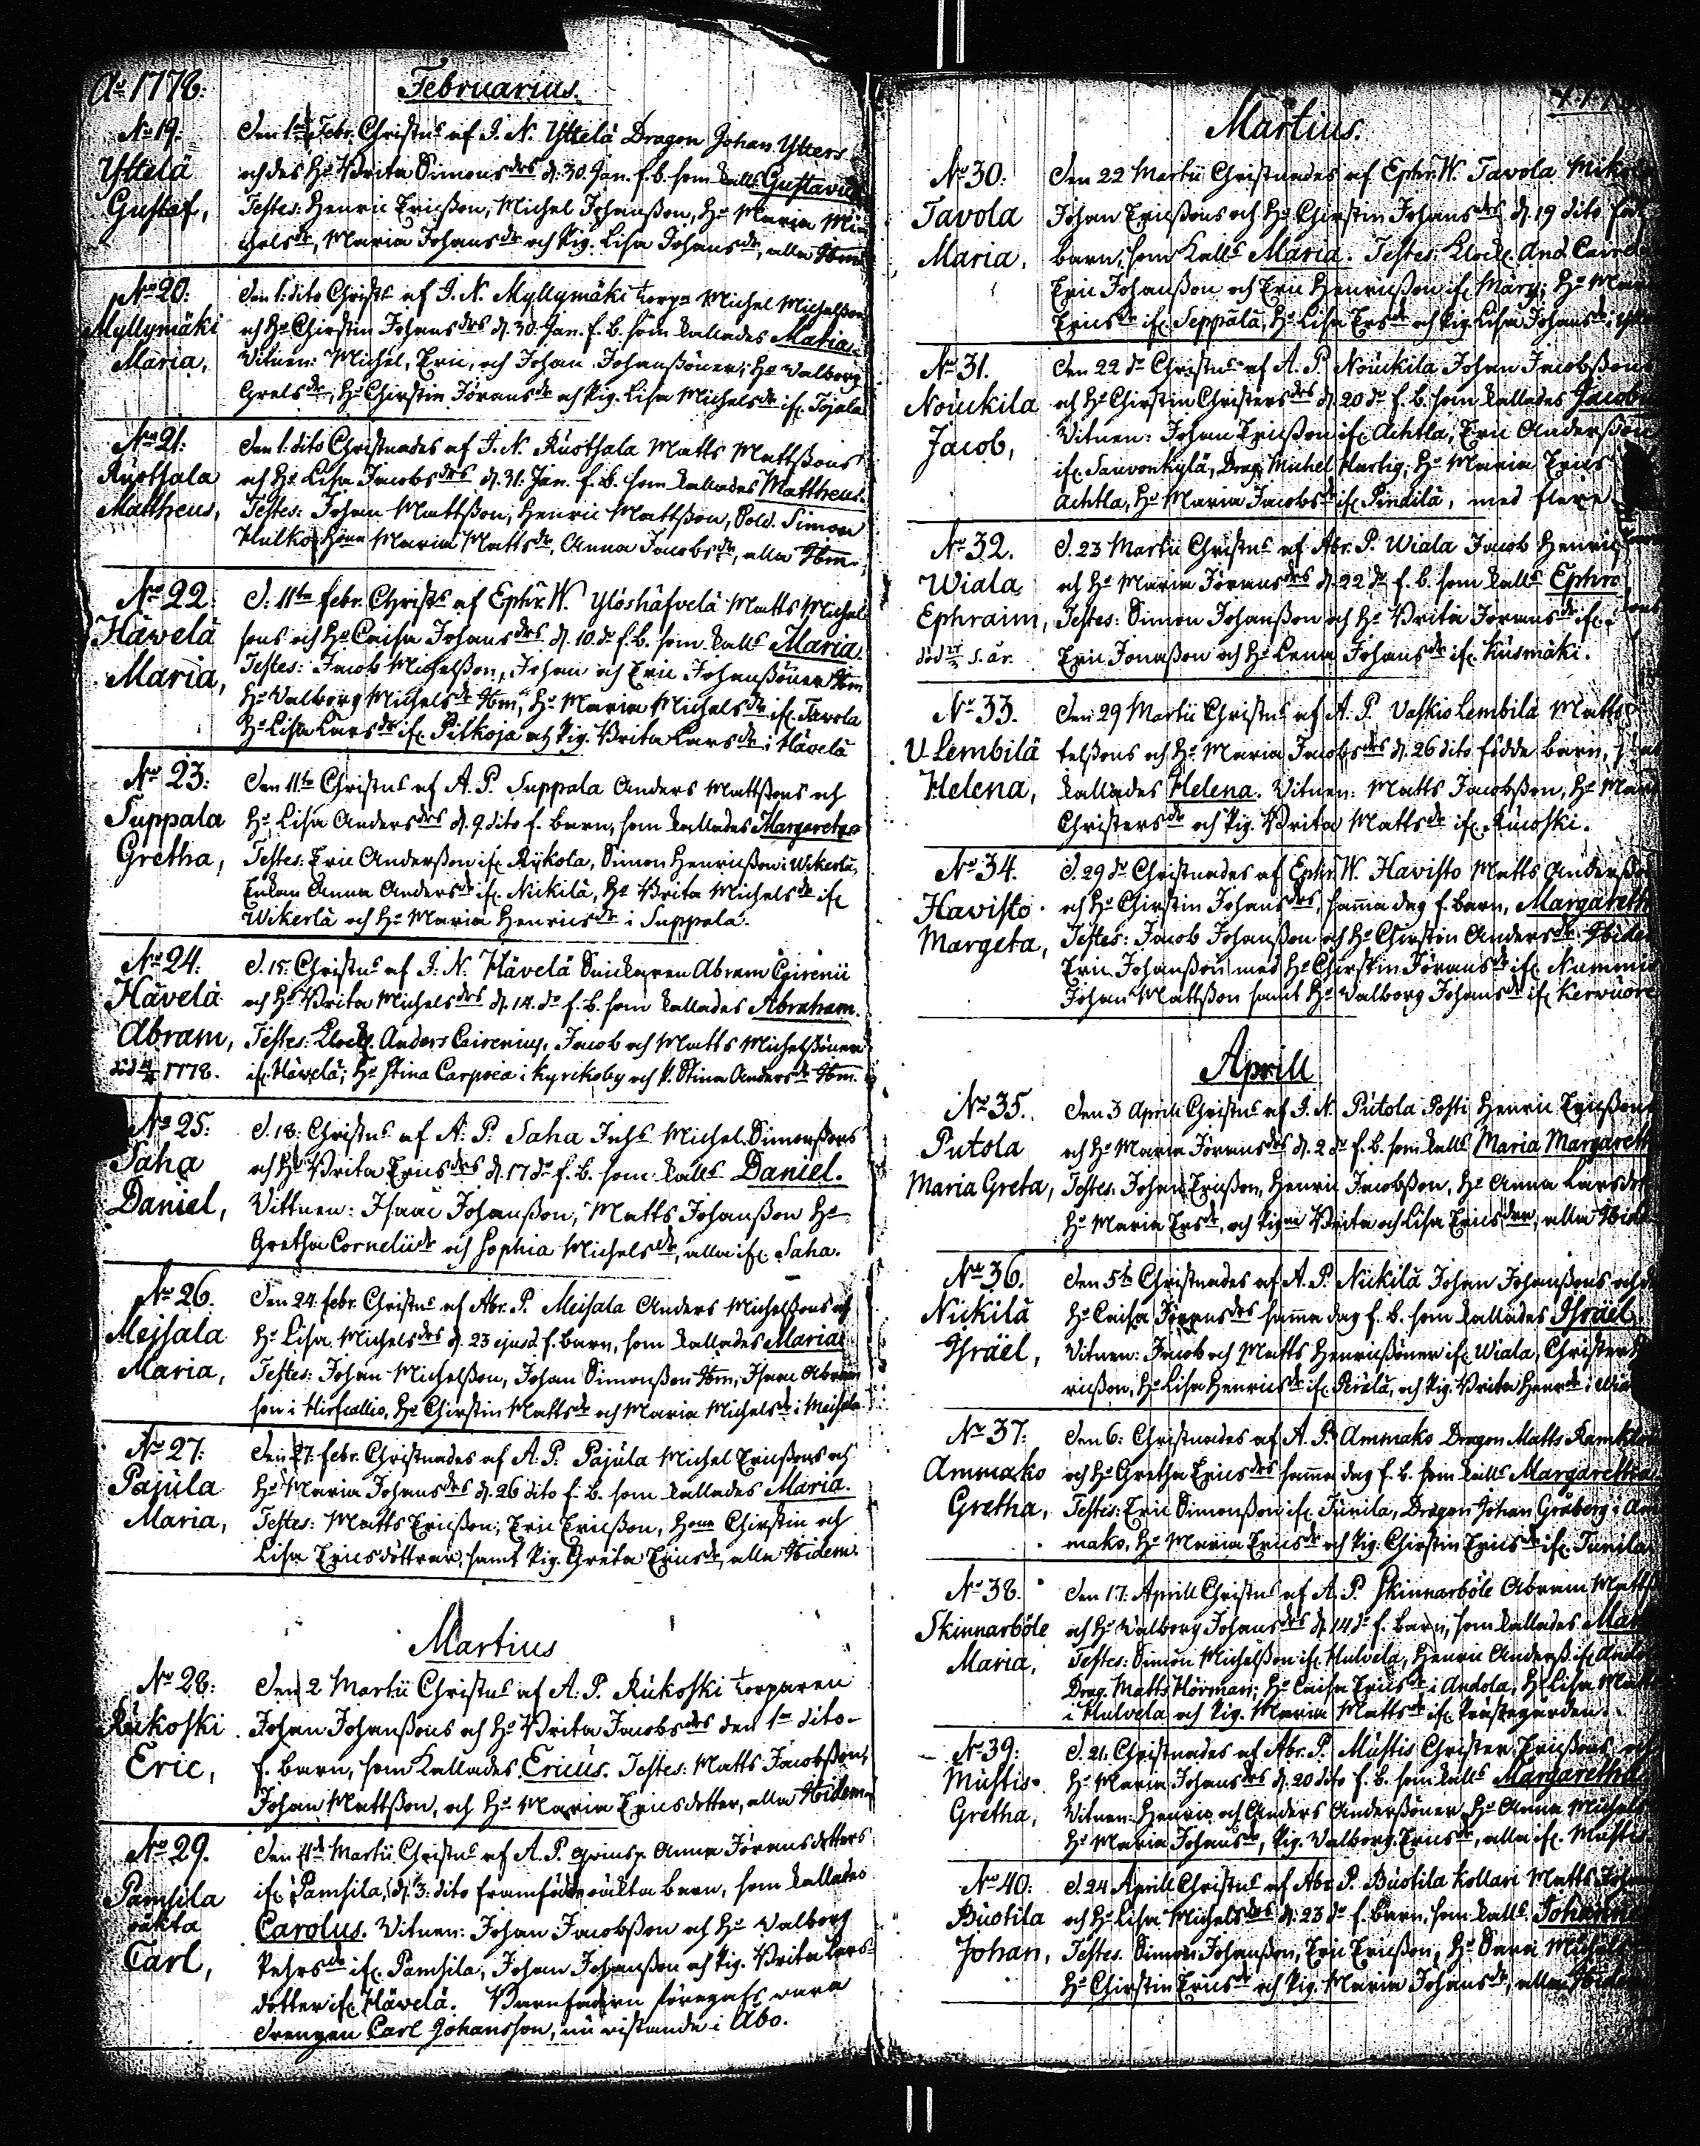 Ao 1778.
Februarius.
No 19.
Yttelä
Gustaf,
Den 1ste Febr. Christns af J. N. Yttelä Dragon Johan Ytters
och des Ho Brita Simonsdrs d. 30. Jan. f. b. som kalls Gustavus
Testes: Henric Ericsson, Michel Johansson, Ho Maria Mi-
chelsdr, Maria Johansdr och Pig. Lisa Johansdr, alla Ibm
No 20.
Myllymäki
Maria,
Den 1. dito Christs af J. N. Myllymäki torpn Michel Michelssons
och Ho Chirstin Johansdrs d. 30. Jan. f. b. som kallades Maria.
Vitnen: Michel, Eric, och Johan Johanssöner, Ho Valborg
Grelsdr, Ho Chirstin Jöransdr och Pig. Lisa Michelsdr ifr. Tojala
No 21.
Ruothala
Mattheus,
Den 1. dito Christnades af J. N. Ruothala Matts Mattssons
och Ho Lisa Jacobsdrs d. 31. Jan. f. b. som kallades Mattheus.
Testes: Johan Mattsson, Henric Mattsson, Sold. Simon
Hulko, Hönn Maria Mattsdr, Anna Jacobsdr, alla Ibm.
No 22.
Häwelä
Maria,
D. 11te febr. Christs af Ephr. W. Ylöshäfvelä Matts Michel
sons och Ho Caisa Johansdrs d. 10. do f. b. som kalls Maria.
Testes: Jacob Michelsson, Johan och Eric Johanssöner Ibm
Ho Valborg Michelsdr Ibm, Ho Maria Michelsdr ifr. Tavola
Ho Lisa Larsdr ifr. Pilkoja och Pig. Brita Larsdr i Hävelä
No 23.
Suppala
Gretha,
Den 11te Christns af A. P. Suppala Anders Mattssons och
Ho Lisa Andersdrs d. 9 dito f. barn, som kallades Margaretha
Testes: Eric Andersson ifr. Rykola, Simon Henricsson i Wikerlä,
Enkan Anna Andersdr ifr. Nickilä, Ho Brita Michelsdr ifr
Wikerlä och Ho Maria Henricsdr i Suppala.
No 24.
Hävelä
Abram,
död 1778.
D. 15. Christns af J. N. Hävelä Snickaren Abram Cairenii
och Ho Brita Michelsdrs d. 14. do f. b. som kallades Abraham.
Testes: Klock. Anders Cairenius, Jacob och Matts Michelssöner
ifr. Hävelä; Ho Stina Carpoea i Kyrckoby och P. Stina Andersdr Ibm.
No 25.
Saha
Daniel,
D. 18. Christns af A. P. Saha Inhs Michel Simonssons
och Ho Brita Ericsdrs d. 17 do f. b. som kalls Daniel.
Vittnen: Isaac Johansson, Matts Johansson Ho
Gretha Corneliidr och Sophia Michelsdr, alla ifr. Saha.
No 26.
Meisala
Maria,
Den 24. febr. Christns af Abr. P. Meisala Anders Michelssons och
Ho Lisa Michelsdrs d. 23 ejusd f. barn, som kallades Maria.
Testes: Johan Michelsson, Johan Simonsson Ibm, Isaac Abram
son i Hirfcallio, Ho Chirstin Mattsdr och Maria Michelsdr i Meisala
No 27.
Pajula
Maria,
Den 27. febr. Christnades af A. P. Pajula Michel Ericssons och
Ho Maria Johansdrs d. 26 dito f. b. som kallades Maria.
Testes: Matts Ericsson, Eric Ericsson, Honn Chirstin och
Lisa Ericsdöttrar, samt Pig. Greta Ericsdr, alla Ibidem.
Martius
No 28.
Rukoski
Eric,
Den 2 Martii Christns af A. P. Rukoski torparen
Johan Johanssons och Ho Brita Jacobsdrs den 1ste dito
f. barn, som kallades Ericus. Testes: Matts Jacobsson,
Johan Mattsson, och Ho Maria Ericsdotter, alla Ibidem.
No 29.
Pamsila
oäkta
Carl,
Den 4de Martii Christns af A. P. qvinsp. Anna Jöransdotters
ifr. Pamsila, d. 3. dito framfödde oäkta barn, som kallades
Carolus. Vitnen: Johan Jacobsson och Ho Valborg
Pehrsdr ifr. Pamsila, Johan Johansson och Pig. Brita Lars-
dotter ifr. Hävelä. Barnfadren föregafs vara
Drengen Carl Johansson, nu vistande i Åbo.
Martius.
No 30.
Tavola
Maria,
Den 22 Martii Christnades af Ephr. W. Tavola
Johan Ericssons och Ho Chirstin Johansdrs d. 19 dito
barn, som kalls Maria. Testes: Klock. And. Cairen
Eric Johansson och Eric Henricsson ifr. Märy; Ho
Ericsdr ifr. Seppälä, Ho Lisa Ersdr och Pig. Lisa Johansdr
No 31.
Nouckila
Jacob,
Den 22 do Christns af A. P. Nouckila Johan Jacobssons
och Ho Chirstin Christersdrs d. 20 do f. b. som kallades Jacobus
Vitnen: Johan Ericsson ifr. Achtla, Eric Andersson
ifr. Sauvonkylä, Drag. Michel Hurtig, Ho Maria Erics
Achtla, Ho Maria Jacobsdr ifr. Pindilä, med flere
No 32.
Wiala
Ephraim,
död 5. år.
D. 23 Martii Christns af Abr. P. Wiala Jacob Henric
och Ho Maria Jöransdrs d. 22 do f. b. som kalls Ephra
Testes: Simon Johansson och Ho Brita Joransdr ifr.
Eric Jonasson och Ho Lena Johansdr ifr. Kusmäki.
No 33.
V. Lembilä
Helena,
Den 29 Martii Christns af A. P. Vaskio Lembilä Matts
telssons och Ho Maria Jacobsdrs d. 26 dito födde barn,
kallades Helena. Vitnen: Matts Jacobsson, Ho
Christersdr och Pig. Brita Mattsdr ifr. Rucoski.
No 34.
Havisto
Margeta,
D. 29 do Christnades af Ephr. W. Havisto Matts Anderssons
och Ho Chirstin Johansdrs, samma dag f. barn, Margareth
Testes: Jacob Johansson och Ho Chirstin Andersdr Ibidem
Eric Johansson med Ho Chirstin Jöransdr ifr. Nummis
Johan Mattsson samt Ho Valborg Johansdr ifr. Kervuore
Aprill
No 35.
Putola
Maria Greta,
Den 3 Aprill Christns af J. N. Putola Posti Henric Ericssons
och Ho Maria Jöransdrs d. 2 do f. b. som kalls Maria Margareth
Testes: Johan Ericsson, Henric Jacobsson, Ho Anna Larsdr
Ho Maria Ersdr, och Pigne Brita och Lisa Ericsdrar, alla Ibid
No 36.
Nickilä
Israël,
Den 5te Christnades af A. P. Nickilä Johan Johanssons och
Ho Caisa Joransdrs samma dag f. b. som kallades Israël.
Vitnen: Jacob och Matts Henricssöner ifr. Wiala, Christer
ricsson, Ho Lisa Henricsdr ifr. Perälä, och Pig. Brita Henrsdr i
No 37.
Ammako
Gretha,
Den 6. Christnades af A. P. Ammako Dragon Matts
och Ho Gretha Ericsdrs samma dag f. b. som kalls Margaretha
Testes: Eric Simonsson ifr. Junila, Dragon Johan Gråberg i Am
mako, Ho Maria Ericsdr och Pig. Chirstin Ericsdr ifr. Junila
No 38.
Skinnarböle
Maria,
Den 17. Aprill Christns af A. P. Skinnarböle Abram Matts
och Ho Valborg Johansdrs d. 14 do f. barn, som kallades Mar
Testes: Simon Michelsson ifr. Hulvela, Henric Anderss. ifr. Andola
Drag. Matts Hörman; Ho Caisa Ericsdr i Andola, Ho Lisa Matts
i Hulvela och Pig. Maria Mattsdr ifr. Prästegården.
No 39.
Mustis
Gretha,
D. 21. Christnades af Abr. P. Mustis Christer Ericssons och
Ho Maria Johansdrs d. 20 dito f. b. som kalls Margaretha
Vitnen: Henric och Anders Anderssöner Ho Anna Michels
Ho Maria Johansdr, Pig. Valborg Ericsdr, alla ifr. Mustis
No 40.
Buotila
Johan,
D. 24 Aprill Christns af Abr. P. Buotila Kollari Matts Johan
och Ho Lisa Michelsdrs d. 23 do f. barn, som kalls Johannes
Testes. Simon Johansson, Eric Ericsson, Ho Sara Michels
Ho Chirstin Ericsdr och Pig. Maria Johansdr, alla Ibidem